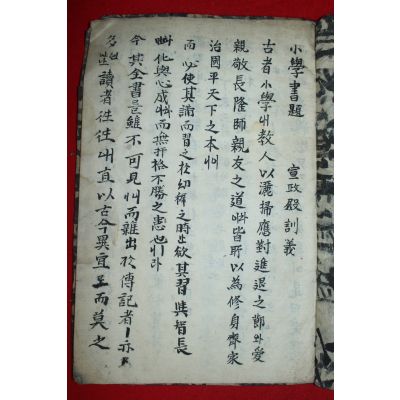 小學書題 宣政殿訓義
古者小學 教人以灑掃應對進退之節와 愛
親敬長隆師親友之道 皆所以為修身齊家
治國平天下之本
而必使其講而習之於幼穉之時 欲其習與智長
化與心成 而無扞格不勝之患也
今其全書 雖不可見 而雜出於傳記者 亦
多 讀者往往 直以古今異宜 而莫之